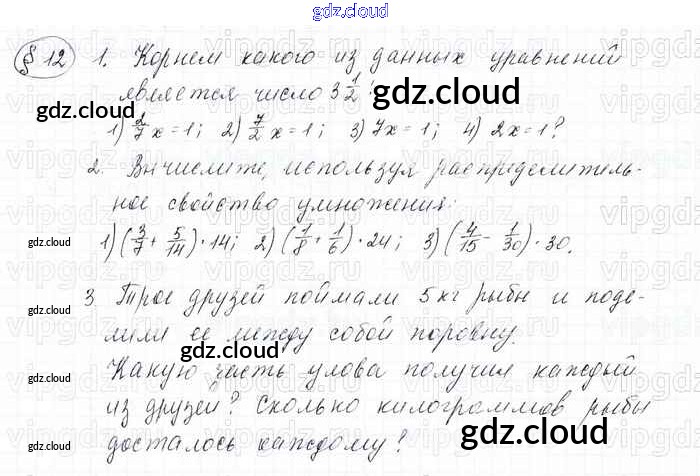 gdz.cloud
§ 12 1. Корнем какого из данных уравнений
является число 3 1/2 :
gdz.cloud
gdz.cloud
1) 2/7 x = 1; 2) 7/2 x = 1; 3) 7x = 1; 4) 2x = 1?
2. Вычислите, используя распределитель-
ное свойство умножения:
gdz.cloud
1) (3/7 + 5/14) · 14; 2) (1/8 + 1/6) · 24; 3) (4/15 - 1/30) · 30.
3. Трое друзей поймали 5 кг рыбы и поде-
лили ее между собой поровну.
gdz.cloud
gdz.cloud
Какую часть улова получил каждый
из друзей? Сколько килограммов рыбы
gdz.cloud
gdz.cloud
досталось каждому?